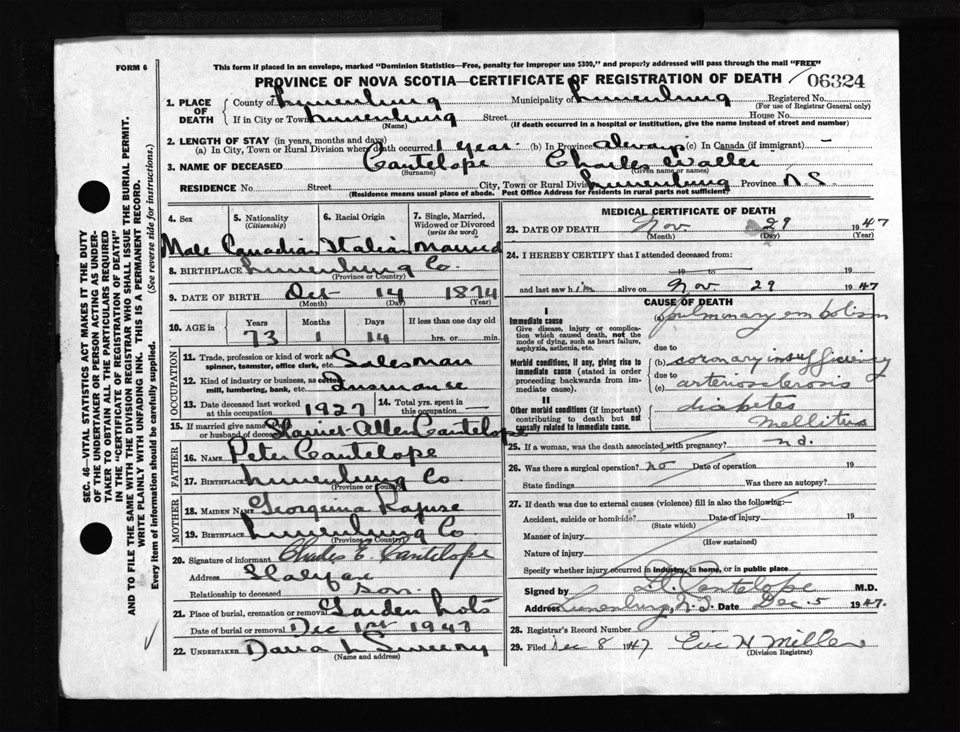 FORM 6
This form if placed in an envelope, marked "Dominion Statistics—Free, penalty for improper use $300," and properly addressed will pass through the mail "FREE"
PROVINCE OF NOVA SCOTIA—CERTIFICATE OF REGISTRATION OF DEATH 06324
1. PLACE OF DEATH County of Lunenburg Municipality of Lunenburg Registered No.
(For use of Registrar General only)
If in City or Town Lunenburg Street House No.
(Name) (If death occurred in a hospital or institution, give the name instead of street and number)
2. LENGTH OF STAY (in years, months and days)
(a) In City, Town or Rural Division where death occurred 1 year (b) In Province Always (c) In Canada (if immigrant) -
3. NAME OF DECEASED Cantelope Charles Walter
(Surname) (Given name or names)
RESIDENCE No. Street City, Town or Rural Division Lunenburg Province N S
(Residence means usual place of abode. Post Office Address for residents in rural parts not sufficient)
4. Sex 5. Nationality (Citizenship) 6. Racial Origin 7. Single, Married, Widowed or Divorced (write the word)
Male Canadian Italian Married
8. BIRTHPLACE Lunenburg Co.
(Province or Country)
9. DATE OF BIRTH Oct 14 1874
(Month) (Day) (Year)
10. AGE in Years Months Days If less than one day old
73 1 14 hrs. or min.
OCCUPATION
11. Trade, profession or kind of work as spinner, teamster, office clerk, etc. Salesman
12. Kind of industry or business, as cotton mill, lumbering, bank, etc. Insurance
13. Date deceased last worked at this occupation 1927 14. Total yrs. spent in this occupation —
15. If married give name of wife or husband of deceased Cantelope
FATHER
16. NAME Peter Cantelope
17. BIRTHPLACE Lunenburg Co.
(Province or Country)
MOTHER
18. MAIDEN NAME Georgina Rafuse
19. BIRTHPLACE Lunenburg Co
(Province or Country)
20. Signature of informant Charles E. Cantelope
Address Halifax
Relationship to deceased Son.
21. Place of burial, cremation or removal Garden Lots
Date of burial or removal Dec 1st 1947
22. UNDERTAKER L Sweeny
(Name and address)
MEDICAL CERTIFICATE OF DEATH
23. DATE OF DEATH Nov 29 1947
(Month) (Day) (Year)
24. I HEREBY CERTIFY that I attended deceased from:
19 to 19
and last saw him alive on Nov. 29 1947
CAUSE OF DEATH
I
Immediate cause (a) pulmonary embolism
Give disease, injury or complication which caused death, not the mode of dying, such as heart failure, asphyxia, asthenia, etc.
due to
Morbid conditions, if any, giving rise to immediate cause (stated in order proceeding backwards from immediate cause).
(b) coronary insufficiency
due to
(c) arteriosclerosis
II
Other morbid conditions (if important) contributing to death but not causally related to immediate cause.
diabetes
mellitus
25. If a woman, was the death associated with pregnancy? no.
26. Was there a surgical operation? no Date of operation 19
State findings Was there an autopsy?
27. If death was due to external causes (violence) fill in also the following:—
Accident, suicide or homicide? Date of injury 19
(State which)
Manner of injury
(How sustained)
Nature of injury
Specify whether injury occurred in industry, in home, or in public place
Signed by Cantelope M.D.
Address Lunenburg, N.S. Date Dec. 5 1947.
28. Registrar's Record Number
29. Filed Dec 8 1947 H Miller
(Division Registrar)
SEC. 46—VITAL STATISTICS ACT MAKES IT THE DUTY
OF THE UNDERTAKER OR PERSON ACTING AS UNDER-
TAKER TO OBTAIN ALL THE PARTICULARS REQUIRED
IN THE "CERTIFICATE OF REGISTRATION OF DEATH"
AND TO FILE THE SAME WITH THE DIVISION REGISTRAR WHO SHALL ISSUE THE BURIAL PERMIT.
WRITE PLAINLY WITH UNFADING INK. THIS IS A PERMANENT RECORD.
Every item of information should be carefully supplied. (See reverse side for instructions.)